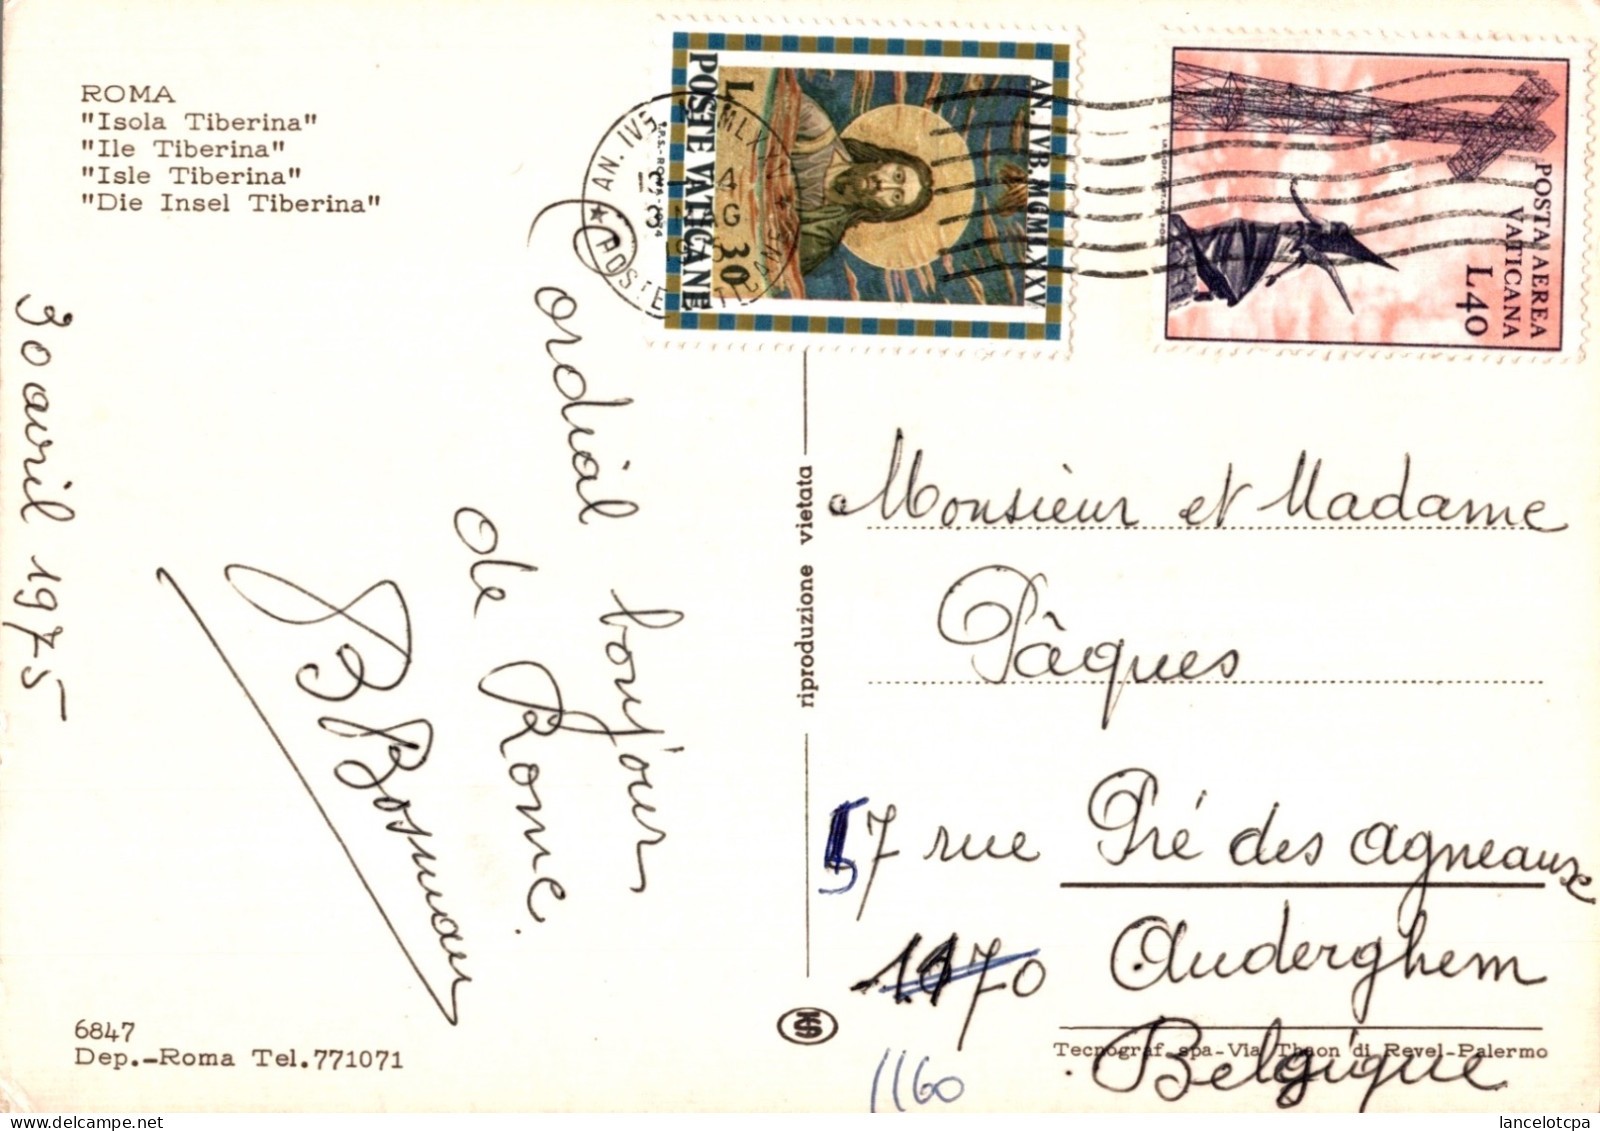 ROMA
"Isola Tiberina"
"Ile Tiberina"
"Isle Tiberina"
"Die Insel Tiberina"
30 avril 1975
Cordial bonjour
de Rome.
Bosman
6847
Dep.-Roma Tel.771071
riproduzione vietata
POSTE VATICANE
L. 30
AN. IVB. MCMLXXV
POSTA AEREA
VATICANA
L.40
AN. IVB. MCMLXXV
POSTE VATICANE
Monsieur et Madame
Pâques
57 rue Pré des Agneaux
1170 Auderghem
Belgique
1160
Tecnograf spa-Via Thaon di Revel-Palermo
lancelotcpa